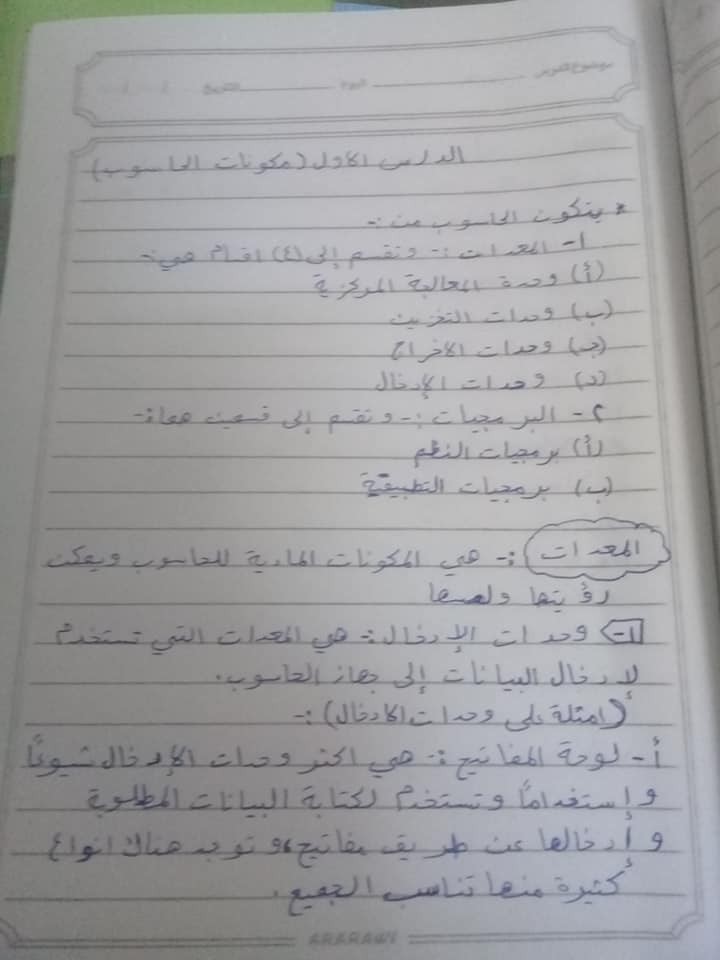 موضوع الدرس اليوم التاريخ
الدرس الاول (مكونات الحاسوب)
* يتكون الحاسوب من :-
١- المعدات :- وتقسم إلى (٤) اقسام هي:-
(أ) وحدة المعالجة المركزية
(ب) وحدات التخزين
(جـ) وحدات الاخراج
(د) وحدات الإدخال
٢- البرمجيات :- وتقسم إلى قسمين هما:-
(أ) برمجيات النظم
(ب) برمجيات التطبيقية
المعدات :- هي المكونات المادية للحاسوب ويمكن
رؤيتها ولمسها
١- وحدات الإدخال :- هي المعدات التي تستخدم
لإدخال البيانات إلى جهاز الحاسوب.
(امثلة على وحدات الادخال) :-
أ- لوحة المفاتيح :- هي اكثر وحدات الإدخال شيوعًا
وإستخدامًا وتستخدم لكتابة البيانات المطلوبة
وإدخالها عن طريق مفاتيح، وتوجد هناك انواع
كثيرة منها تناسب الجميع.
ARARAWI